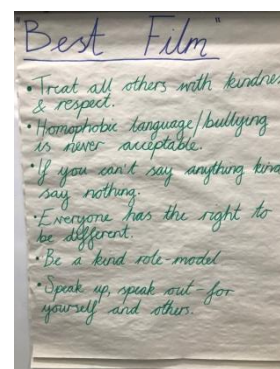 "Best Film"
• Treat all others with kindness
& respect.
• Homophobic language/bullying
is never acceptable.
• If you can't say anything kind
say nothing.
• Everyone has the right to
be different.
• Be a kind role-model
• Speak up, speak out-for
yourself and others.